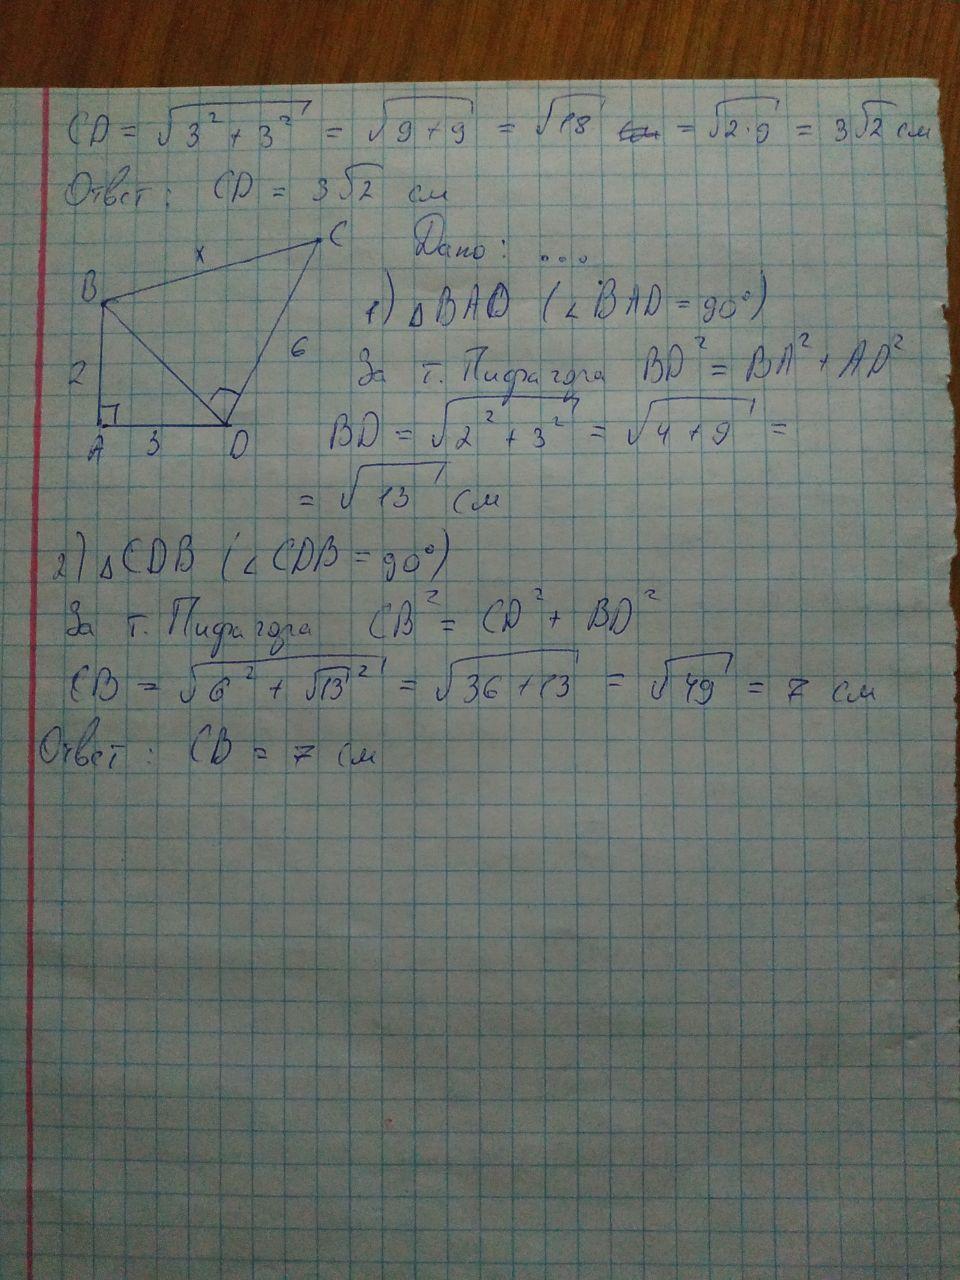 CD = √(3² + 3²) = √(9 + 9) = √18 = √(2·9) = 3√2 см
Ответ: CD = 3√2 см
Дано: ...
B x C
2 6
A 3 D
1) ΔBAD (∠BAD = 90°)
За т. Пифагора BD² = BA² + AD²
BD = √(2² + 3²) = √(4 + 9) =
= √13 см
2) ΔCDB (∠CDB = 90°)
За т. Пифагора CB² = CD² + BD²
CB = √(6² + √13²) = √(36 + 13) = √49 = 7 см
Ответ: CB = 7 см